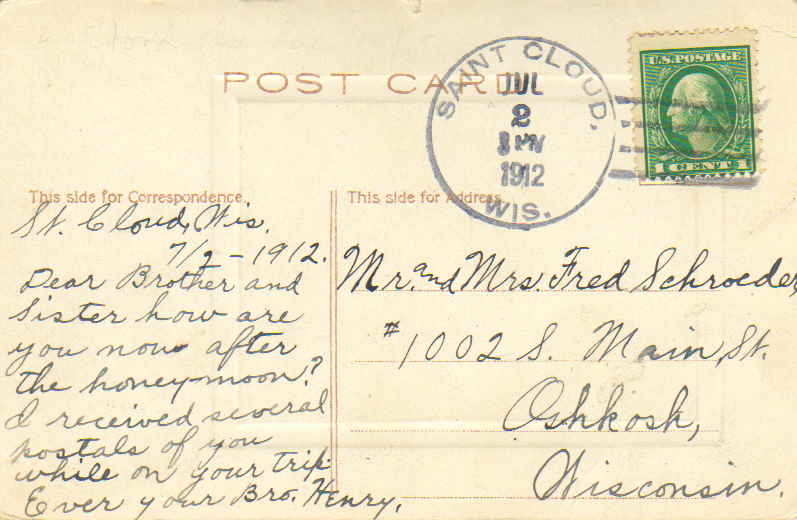 POST CARD
SAINT CLOUD,
JUL
2
1912
WIS.
U.S. POSTAGE
1 CENT 1
This side for Correspondence.
This side for Address.
St. Cloud, Wis.
7/2-1912.
Dear Brother and
Sister how are
you now after
the honey-moon?
I received several
postals of you
while on your trip.
Ever your Bro. Henry.
Mr. and Mrs. Fred Schroeder,
#1002 S. Main, St.
Oshkosh,
Wisconsin.